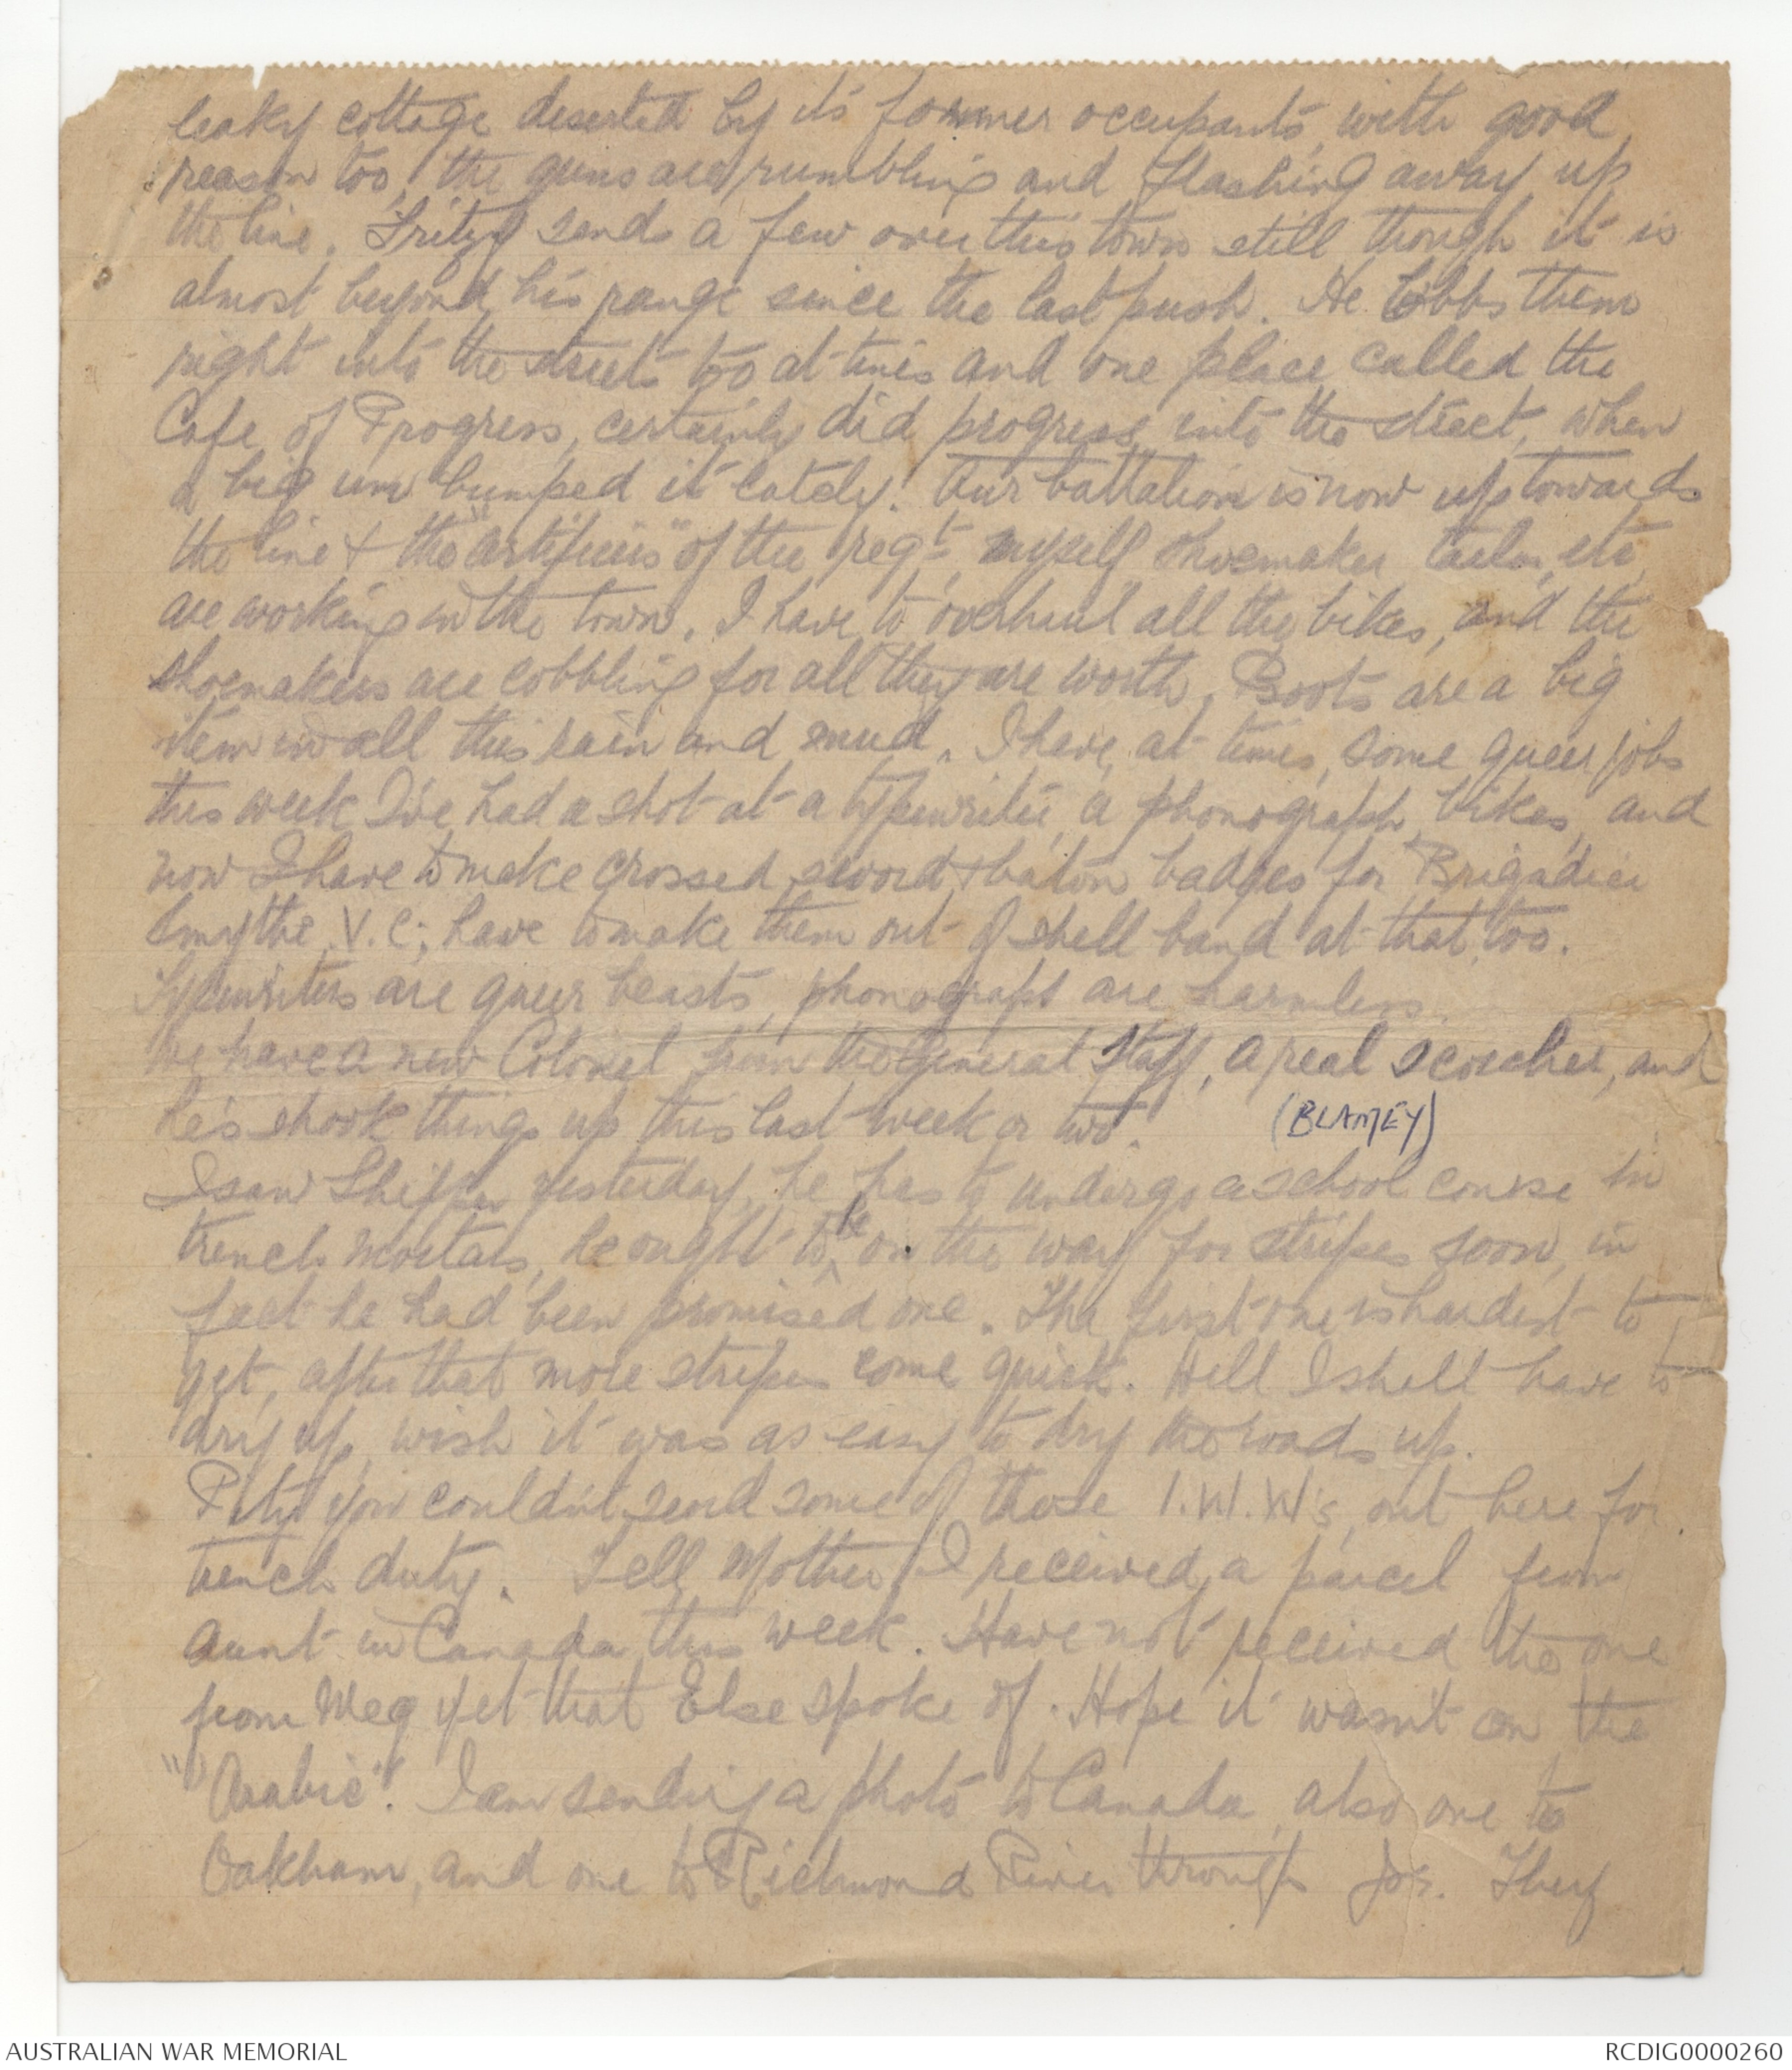 leaky cottage deserted by its former occupants, with good
reason too, the guns are rumbling and flashing away up
the line. Fritzy sends a few over this town still though it is
almost beyond his range since the last push. He lobbs them
right into the streets too at times and one place called the
Cafe of Progress, certainly did progress into the street, when
a big un bumped it lately. Our battalion is now up towards
the line & the "artificers" of the regt, myself shoemaker tailor, etc,
are working in the town. I have to overhaul all the bikes, and the
shoemakers are cobbling for all they are worth. Boots are a big
item in all this rain and mud. I have, at times, some queer jobs
this week I've had a shot at a typewriter, a phonograph, bikes, and
now I have to make crossed sword & baton badges for Brigadier
Smythe, V.C; have to make them out of shell band at that, too.
Typewriters are queer beasts, phonographs are harmless.
We have a new Colonel from the General Staff, a real scorcher, and
he's shook things up this last week or two.
(BLAMEY)
I saw yesterday, he has to undergo a school course in
trench mortars, he ought to be on the way for stripes soon, in
fact he had been promised one. The first one is hardest to
get, after that more stripes come quick. Well I shall have to
dry up, wish it was as easy to dry the roads up.
Pity you couldn't send some of those I.W.W's, out here for
trench duty. Tell Mother I received a parcel from
aunt in Canada this week. Have not received the one
from Meg yet that Else spoke of. Hope it wasn't on the
"Arabic". I am sending a photo to Canada, also one to
Oakham, and one to Richmond River through Jos. They
AUSTRALIAN WAR MEMORIAL
RCDIG0000260